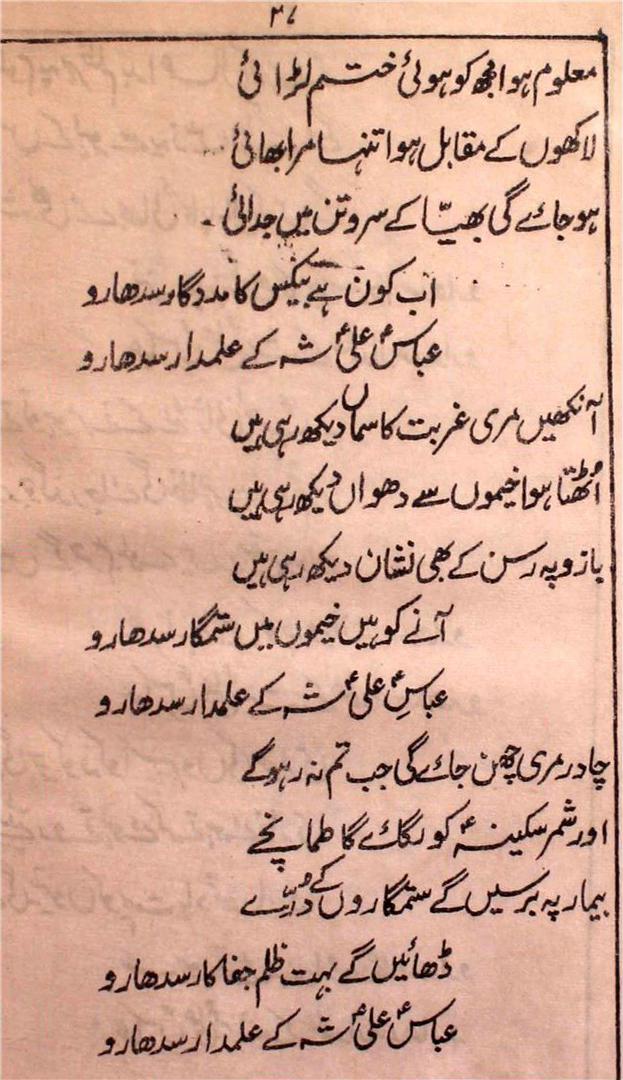 ۳۷
معلوم ہوا مجھ کو ہوئی ختم لڑائی
لاکھوں کے مقابل ہوا تنہا مرا بھائی
ہو جائے گی بھیّا کے سر و تن میں جدائی
اب کون ہے بیکس کا مددگار سدھارو
عباسؑ علیؑ شہ کے علمدار سدھارو
آنکھیں مری غربت کا سماں دیکھ رہی ہیں
اُٹھتا ہوا خیموں سے دھواں دیکھ رہی ہیں
بازو پہ رسن کے بھی نشان دیکھ رہی ہیں
آنے کو ہیں خیموں میں ستمگار سدھارو
عباسِؑ علیؑ شہ کے علمدار سدھارو
چادر مری چھن جائے گی جب تم نہ رہو گے
اور شمر سکینہؑ کو لگائے گا طمانچے
بیمار پہ برسیں گے ستمگاروں کے دُرّے
ڈھائیں گے بہت ظلم جفاکار سدھارو
عباسؑ علیؑ شہ کے علمدار سدھارو